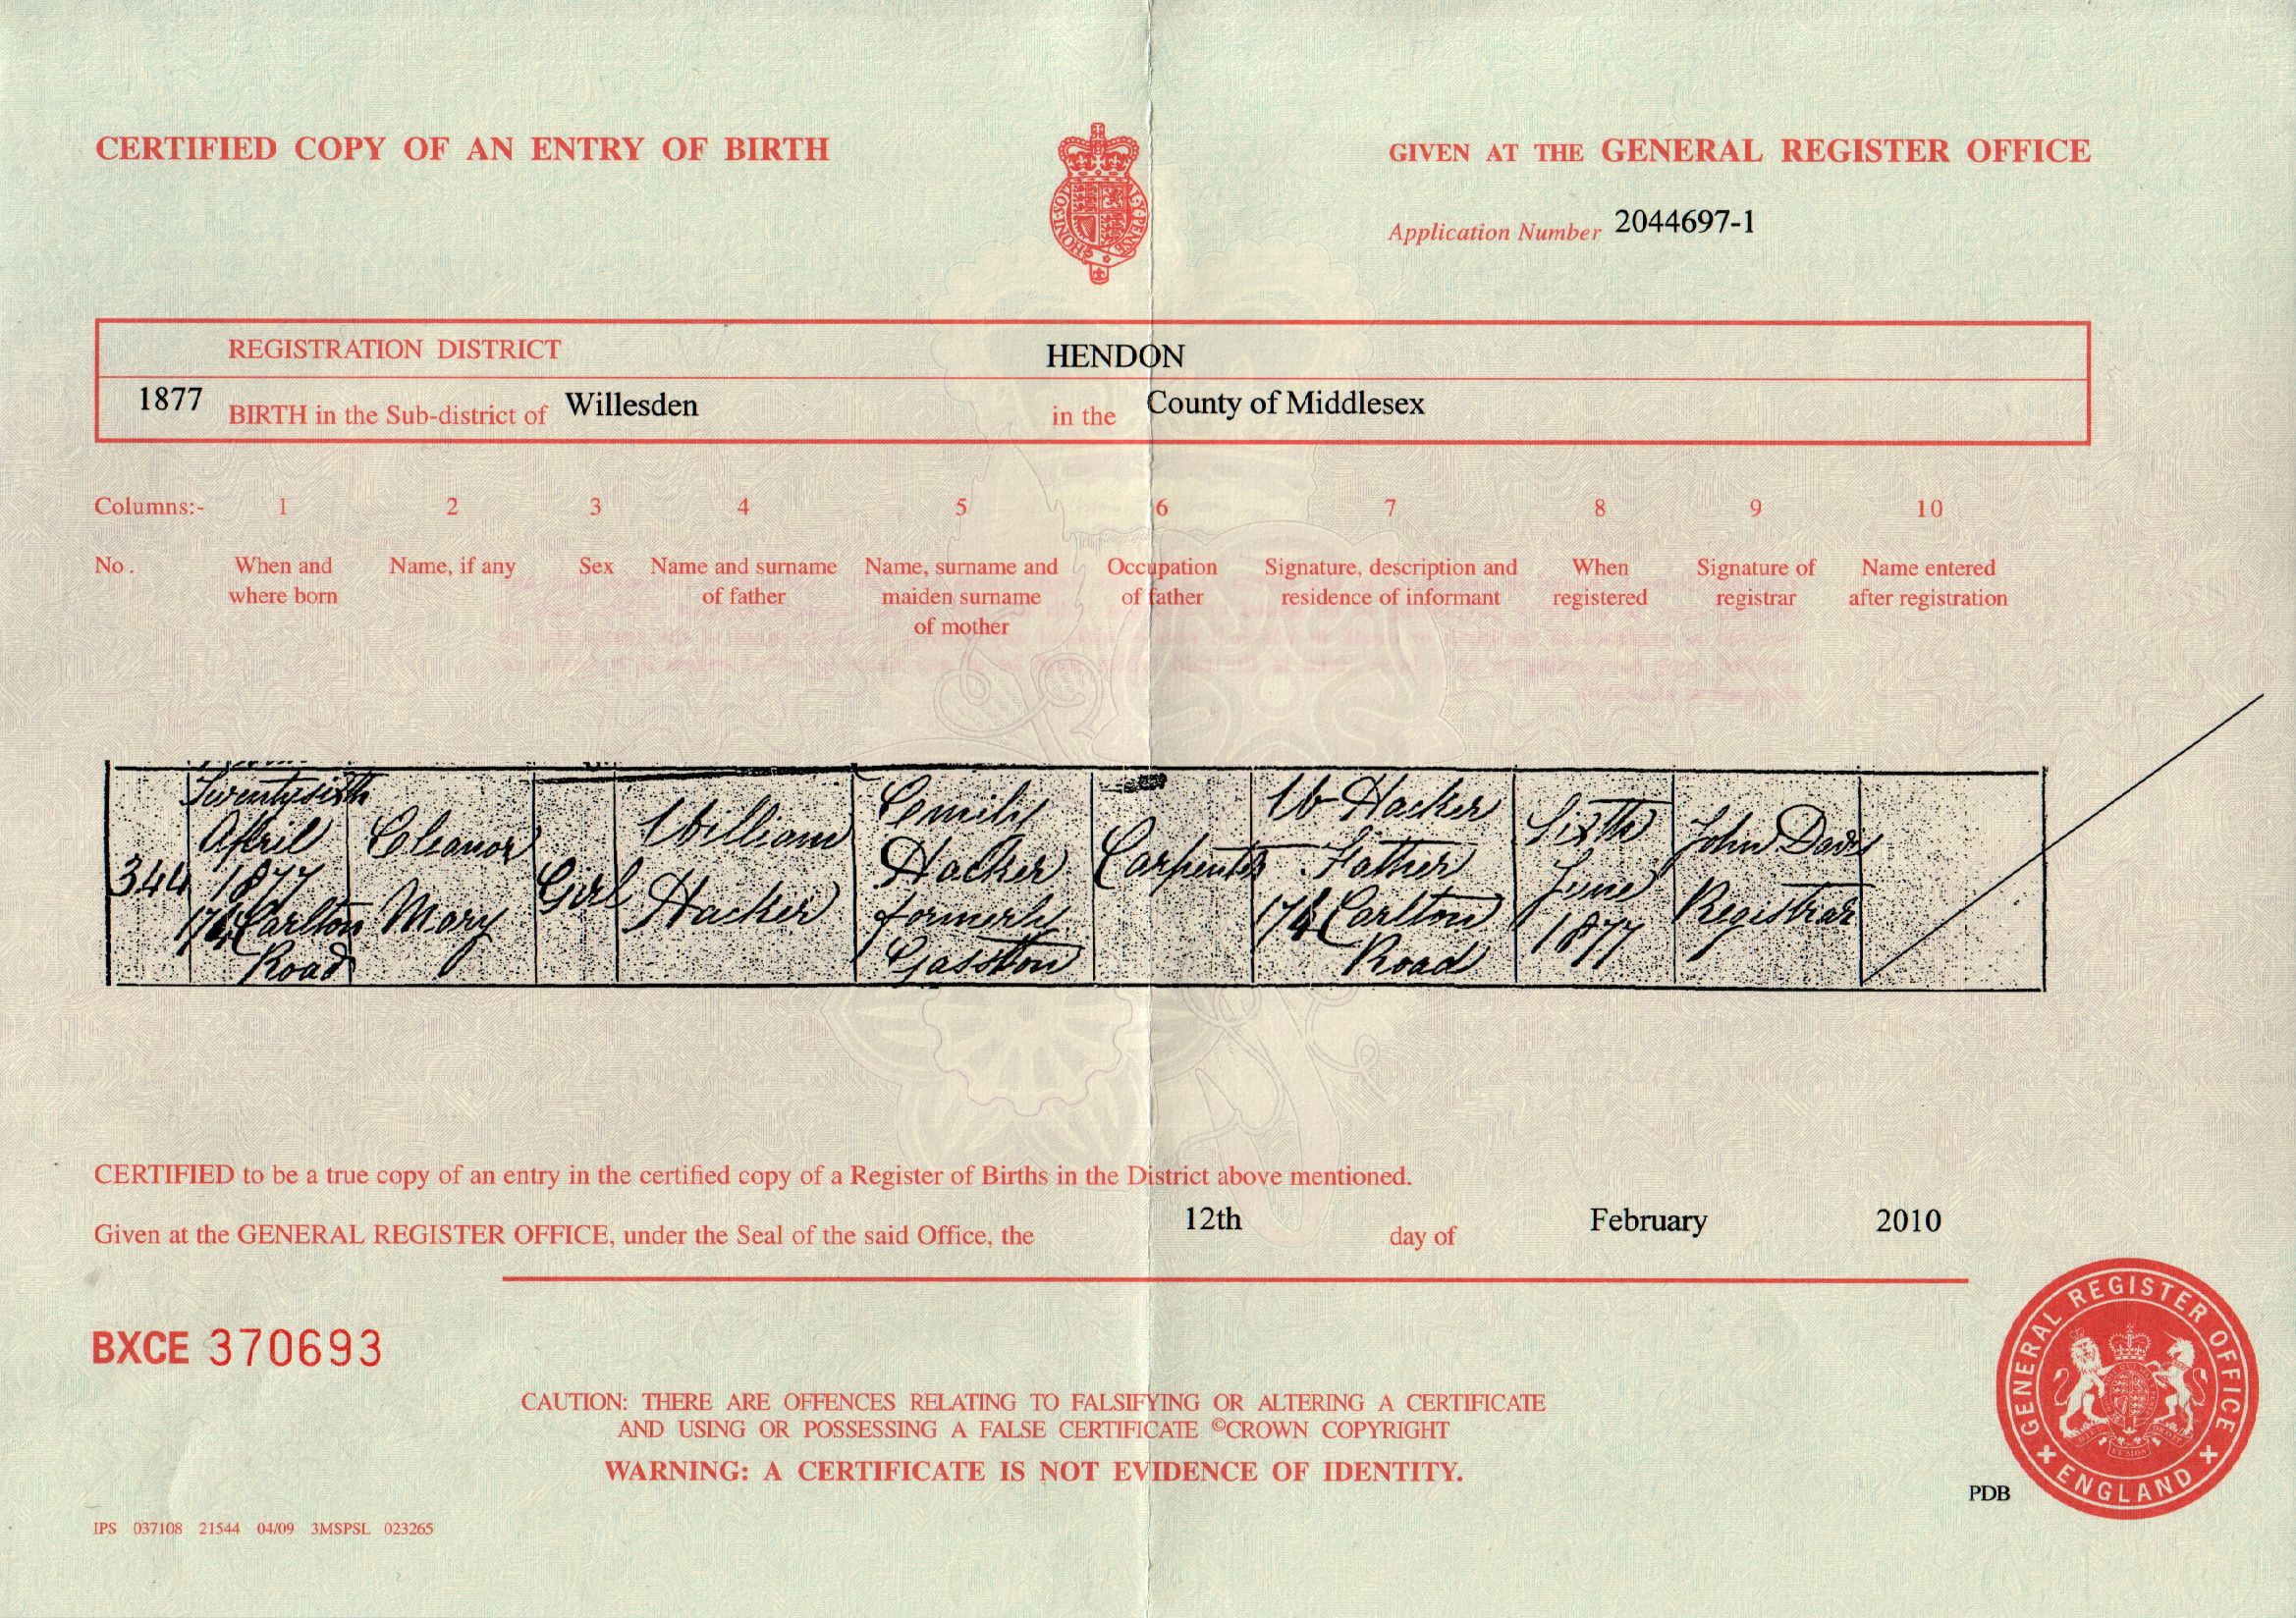 CERTIFIED COPY OF AN ENTRY OF BIRTH
GIVEN AT THE GENERAL REGISTER OFFICE
Application Number 2044697-1
REGISTRATION DISTRICT HENDON
1877 BIRTH in the Sub-district of Willesden in the County of Middlesex
Columns:- 1 2 3 4 5 6 7 8 9 10
No. When and where born
Name, if any
Sex
Name and surname of father
Name, surname and maiden surname of mother
Occupation of father
Signature, description and residence of informant
When registered
Signature of registrar
Name entered after registration
344
Twentysixth
April
1877
Carlton
Road
Eleanor
Mary
Girl
William
Hacker
Emily
Hacker
formerly
Carpenter
W Hacker
Father
Carlton
Road
Sixth
June
1877
John Davis
Registrar
CERTIFIED to be a true copy of an entry in the certified copy of a Register of Births in the District above mentioned.
Given at the GENERAL REGISTER OFFICE, under the Seal of the said Office, the 12th day of February 2010
BXCE 370693
CAUTION: THERE ARE OFFENCES RELATING TO FALSIFYING OR ALTERING A CERTIFICATE
AND USING OR POSSESSING A FALSE CERTIFICATE ©CROWN COPYRIGHT
WARNING: A CERTIFICATE IS NOT EVIDENCE OF IDENTITY.
GENERAL REGISTER OFFICE
ENGLAND
PDB
IPS 037108 21544 04/09 3MSPSL 023265